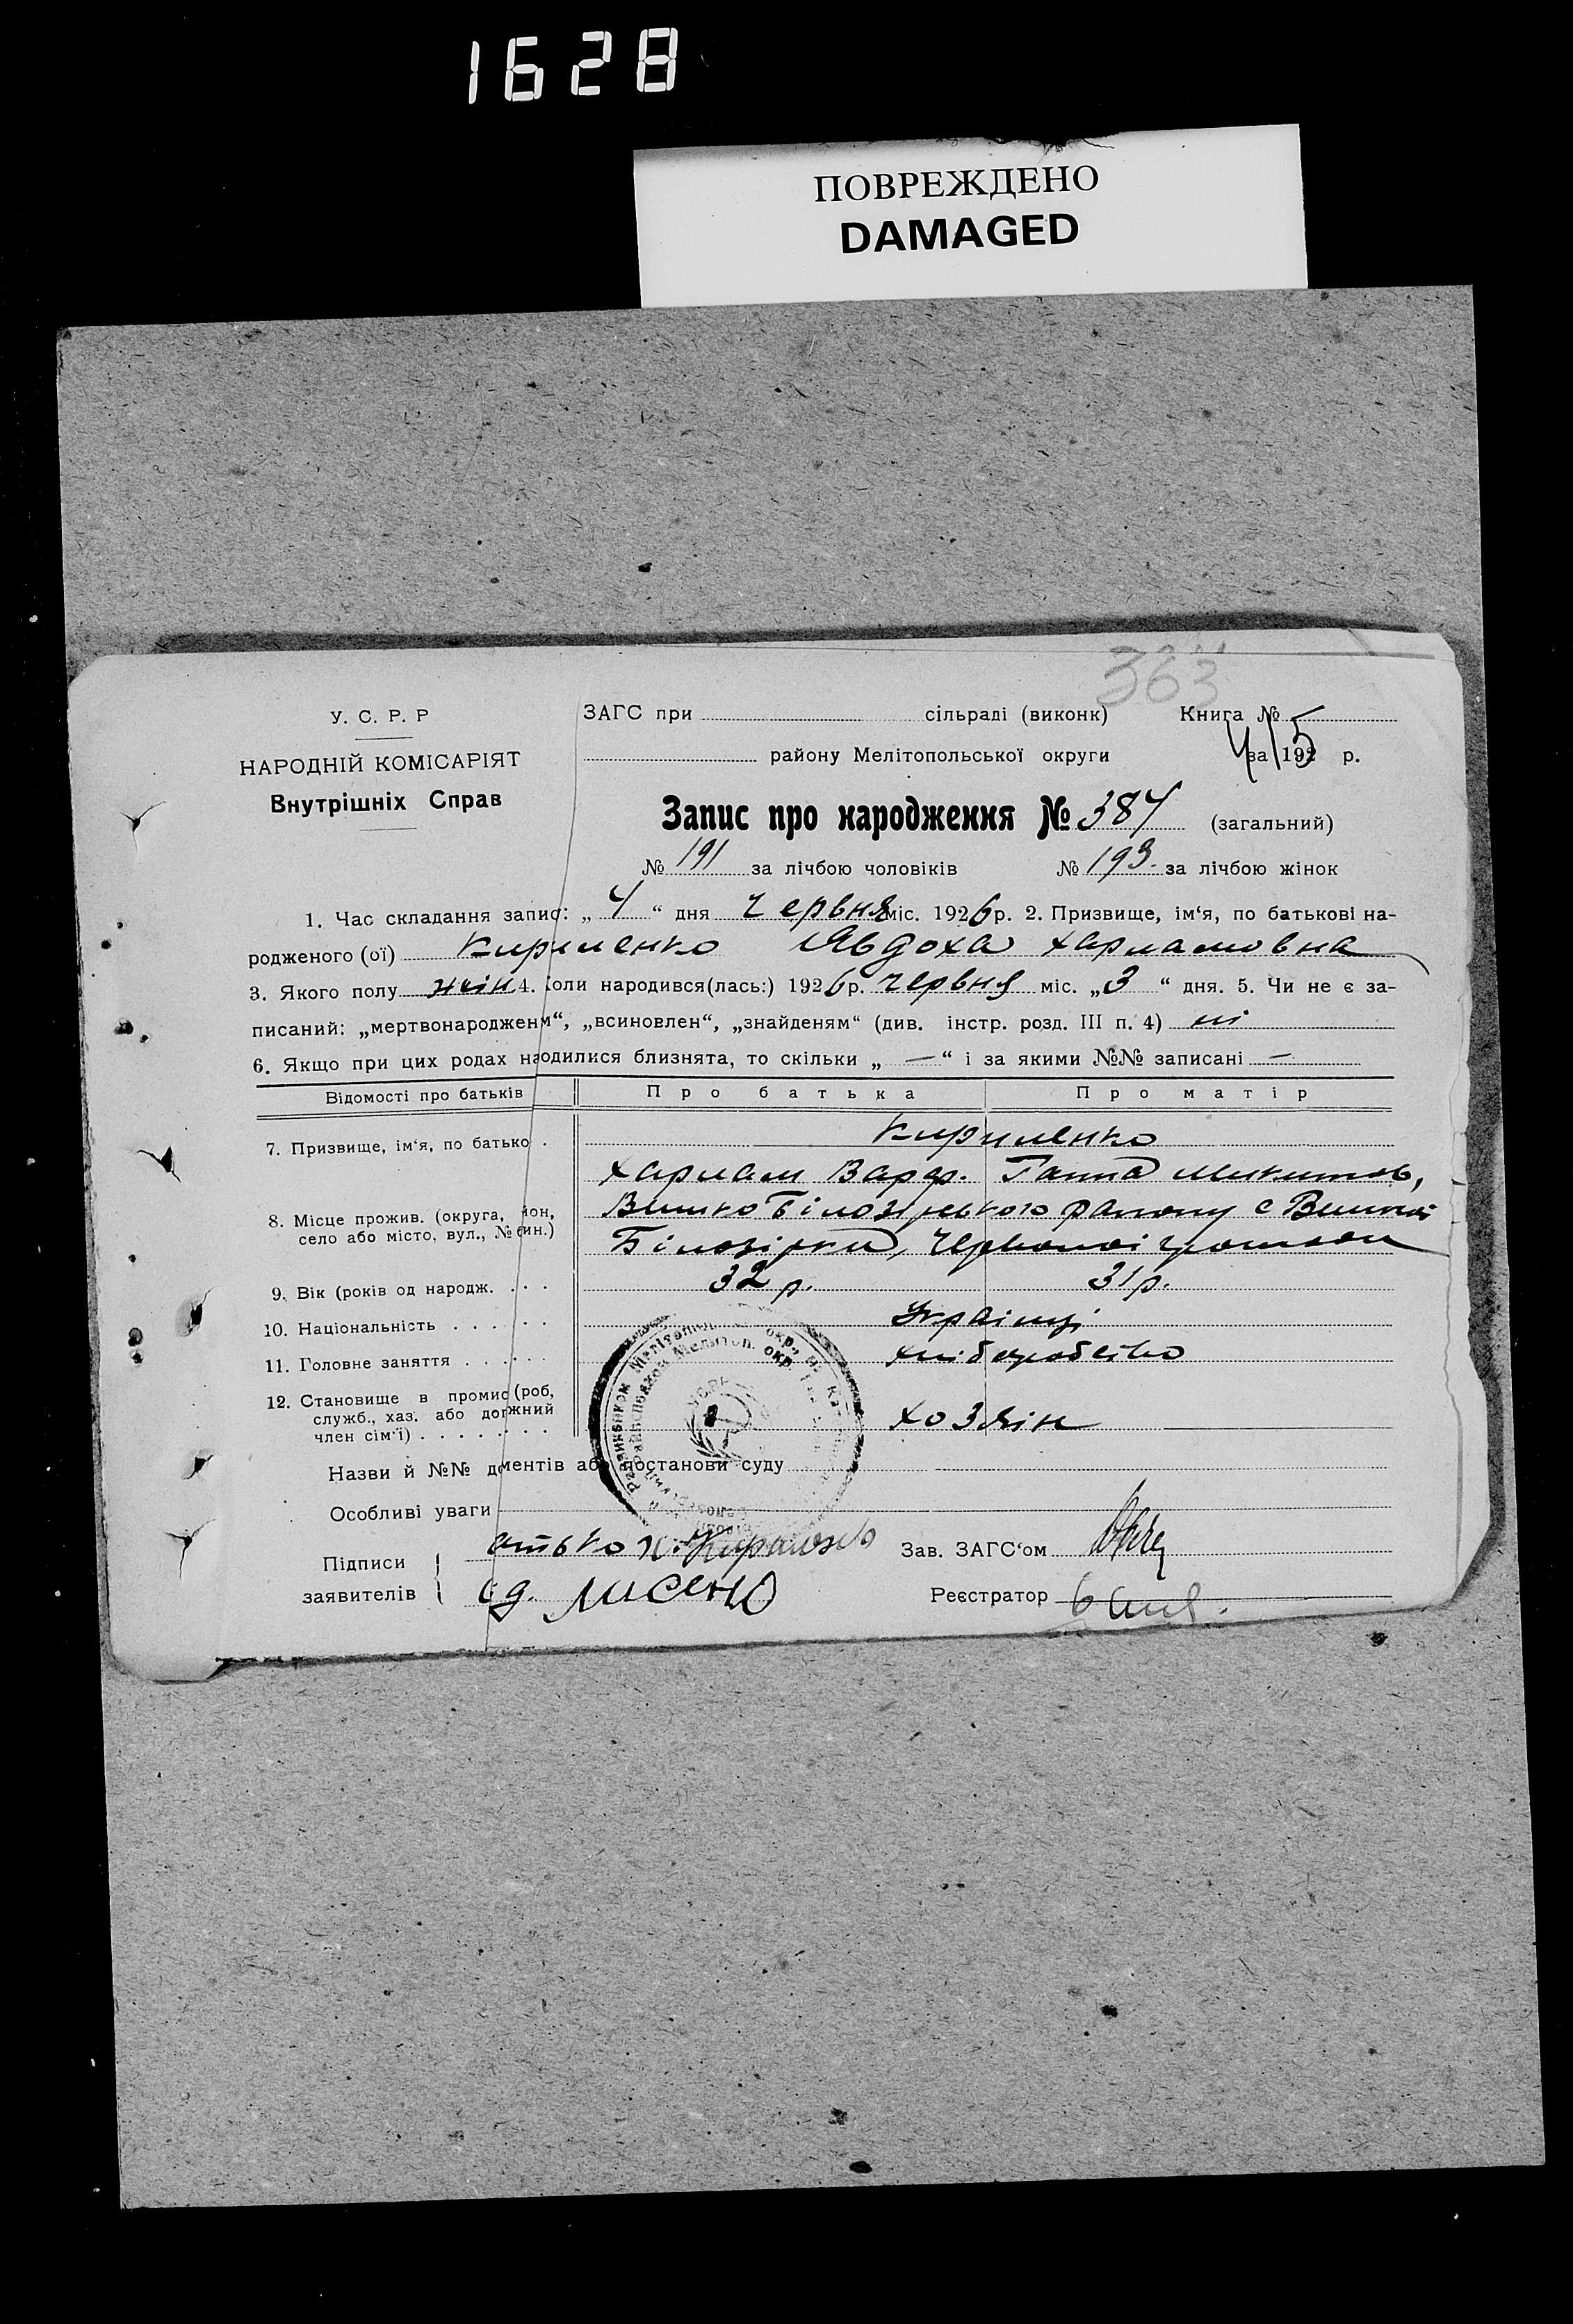 1628
ПОВРЕЖДЕНО
DAMAGED
363
У. С. Р. Р
НАРОДНІЙ КОМІСАРІЯТ
Внутрішніх Справ
ЗАГС при сільраді (виконк) Книга №
району Мелітопольської округи за 192 р.
Запис про народження № 384 (загальний)
№ 191 за лічбою чоловіків № 193 за лічбою жінок
1. Час складання запис: „ 4 “ дня червня міс. 1926 р. 2. Призвище, ім‘я, по батькові на-
родженого (ої) Кириленко Явдоха Харламовна
3. Якого полу жін 4. Коли народився(лась:) 1926 р. червня міс. „ 3 “ дня. 5. Чи не є за-
писаний: „мертвонародженм“, „всиновлен“, „знайденям“ (див. інстр. розд. III п. 4) ні
6. Якщо при цих родах народилися близнята, то скільки „ — “ і за якими №№ записані —
Відомості про батьків Про батька Про матір
7. Призвище, ім‘я, по батько . Кириленко
Харлам Варф. Ганна Микитов,
8. Місце прожив. (округа, йон, Велико Білозірського району с Великої
село або місто, вул., № бин.) Білозірки, Червоної громади
9. Вік (років од народж. . . . 32 р. 31 р.
10. Національність . . . . . . Українці
11. Головне заняття . . . . . . хліборобство
12. Становище в промис (роб,
служб., хаз. або должний
член сім‘ї) . . . . . . . . хозяін
Назви й №№ доментів або постанови суду
Особливі уваги
Підписи
заявителів
атько Х. Кириленко
Зав. ЗАГС‘ом
Лисенко
Реєстратор